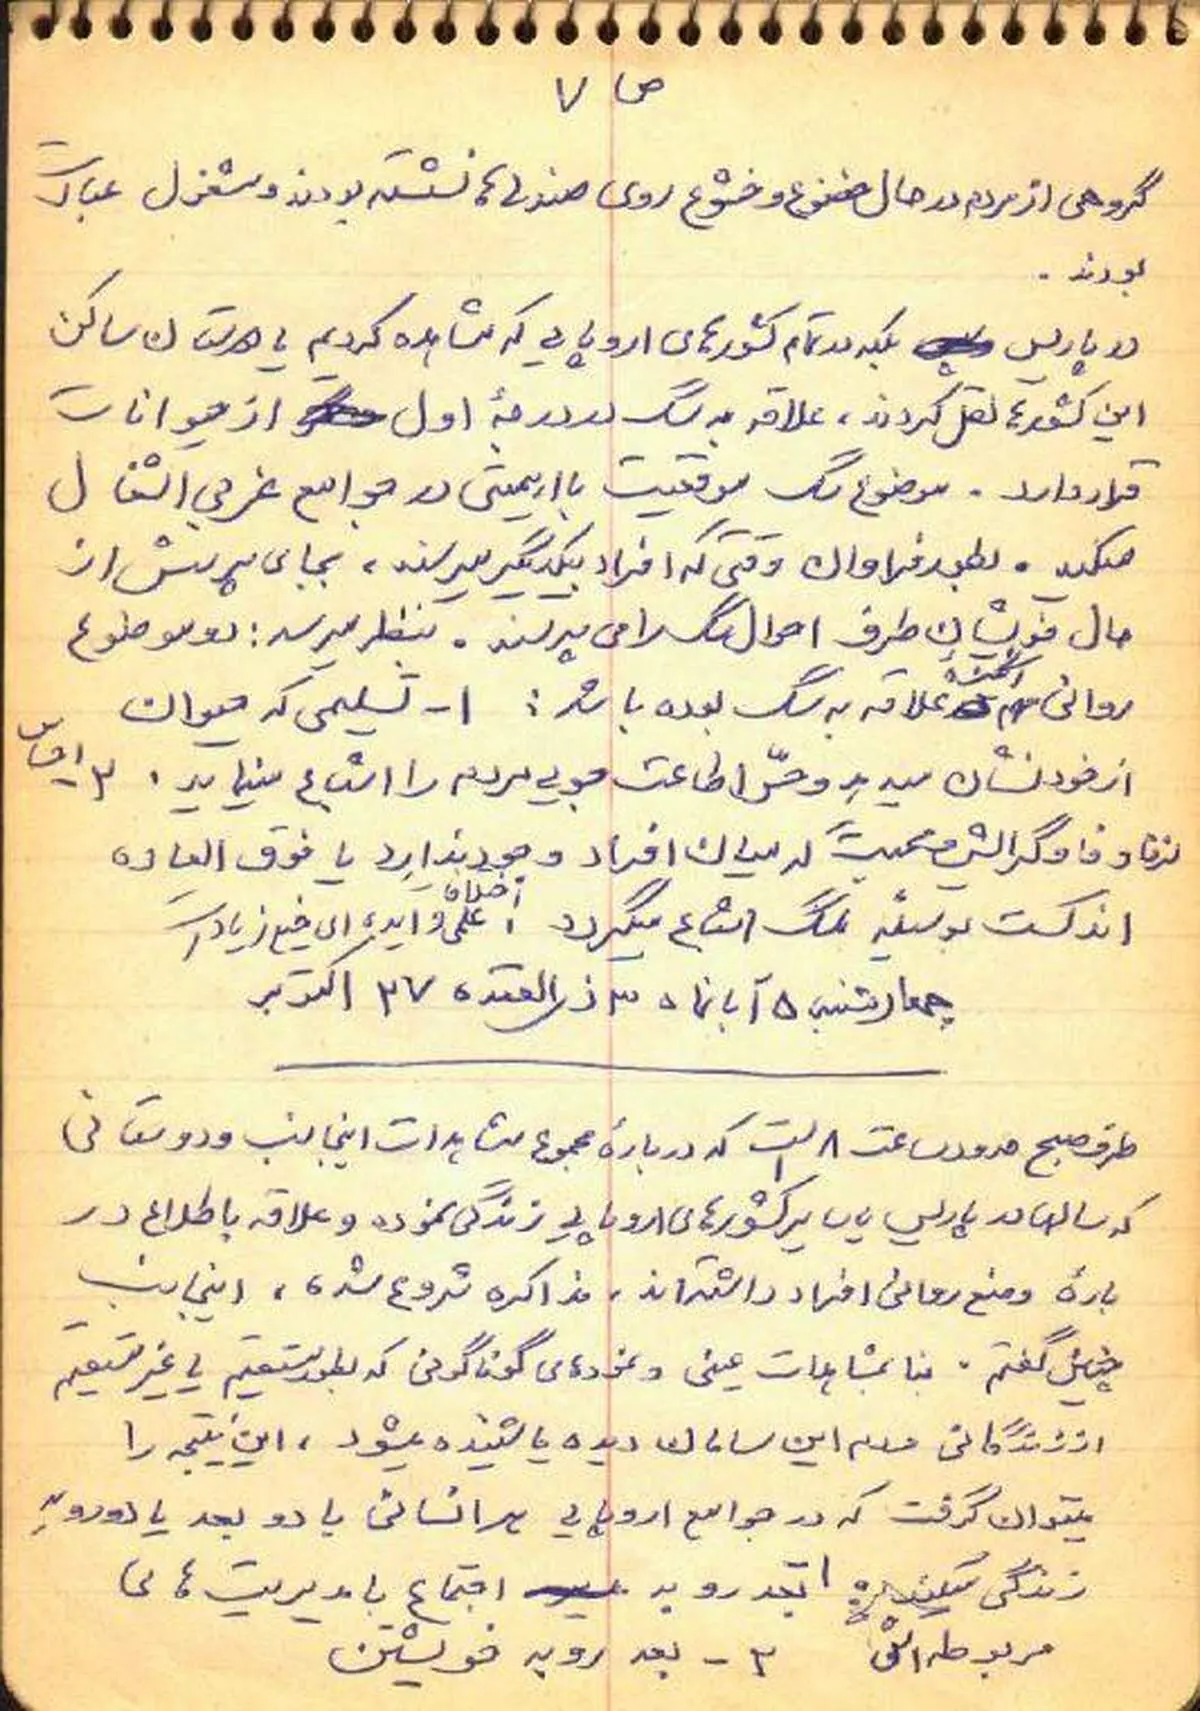 ص ۷
گروهی از مردم در حال خضوع و خشوع روی صندلی‌ها نشسته بودند و مشغول عبادت
بودند .
در پاریس بلکه در تمام کشورهای اروپایی که مشاهده کردیم یا دوستان ساکن
این کشورها نقل کردند ، علاقه به سگ در درجهٔ اول از حیوانات
قرار دارد . موضوع سگ موقعیت با اهمیتی در جوامع غربی اشغال
میکند . بطور فراوان وقتی که افراد بیکدیگر میرسند ، بجای پرسش از
حال خویشان طرف احوال سگ را می پرسند . بنظر میرسد : دو موضوع
روانی انگیزهٔ علاقه به سگ بوده باشد : ۱ - تسلیمی که حیوان
از خود نشان میدهد و حسّ اطاعت جویی مردم را اشباع مینماید . ۲ احساس
لزوم وفا و گرایش و محبت که میان افراد وجود ندارد یا فوق العاده
اندکست بوسیله سگ اشباع میگردد . اخلاق علمی و ایده ای خیلی زیاد است
چهارشنبه ۵ آبانماه ۳ ذی القعده ۲۷ اکتبر
طرف صبح حدود ساعت ۸ است که درباره مجموع مشاهدات اینجانب و دوستانی
که سالها در پاریس یا سایر کشورهای اروپایی زندگی نموده و علاقه باطلاع در
بارهٔ وضع روانی افراد داشته‌اند ، مذاکره شروع شد ، اینجانب
چنین گفتم . بنا بمشاهدات عینی و نمودهای گوناگونی که بطور مستقیم یا غیر مستقیم
از زندگانی مردم این سامان دیده یا شنیده میشود ، این نتیجه را
میتوان گرفت که در جوامع اروپایی هر انسانی با دو بعد یا دو رویه
زندگی میکند ۱ بعد رو به اجتماع با مدیریت های
مربوطه اش ۲ - بعد رو به خویشتن